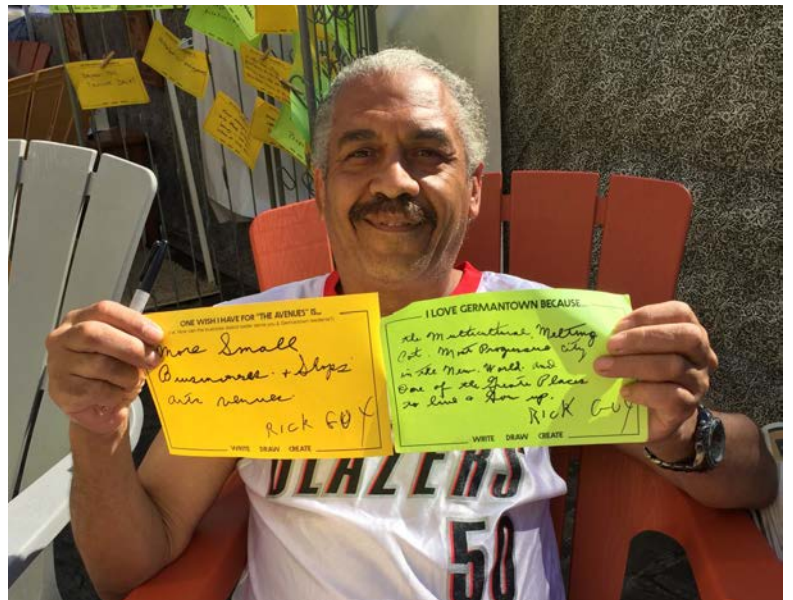 ONE WISH I HAVE FOR "THE AVENUES" IS...
more Small
Businesses + Shops
arts venues
RICK GUY
WRITE DRAW CREATE
I LOVE GERMANTOWN BECAUSE...
the Multicultural, Melting
Pot. Most Progressive City
in the New World. and
One of the Places
to live & up.
RICK GUY
WRITE DRAW CREATE
BLAZERS
50